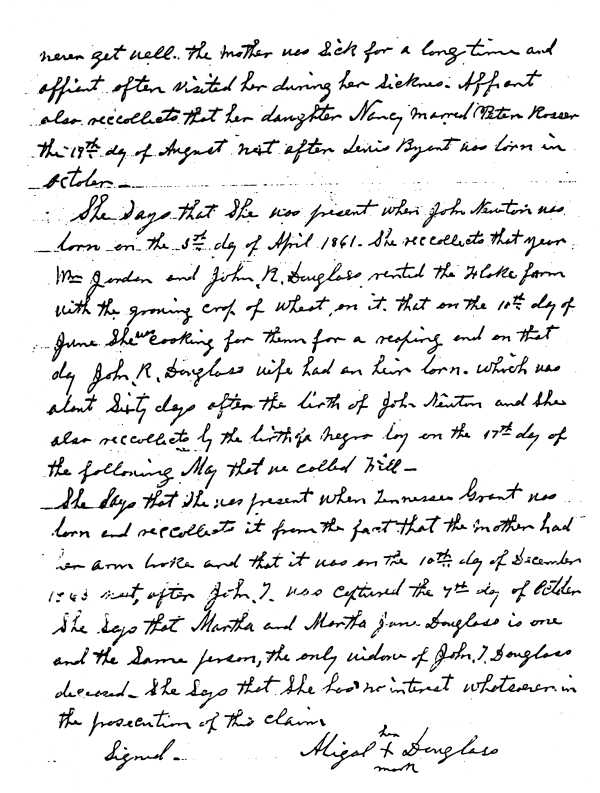 never get well. the mother was sick for a long time and
affiant often visited her during her sicknes. Affiant
also reccollects that her daughter Nancy marred Peter Rosser
the 19th day of August next after Lewis Byant was born in
October.
She says that She was present when John Newton was
born on the 5th day of April 1861. She reccollects that year
Wm Jordan and John R. Douglass rented the farm
with the growing crop of wheat on it. that on the 10th day of
June She was cooking for them for a reaping and on that
day John R. Douglass wife had an heir born. which was
about Sixty days after the birth of John Newton and She
also reccollects by the birth of a negro boy on the 17th day of
the following May that we called Will—
She Says that She was present when Tennessee Grant was
born and reccollects it from the fact that the mother had
her arm broke and that it was on the 10th day of December
1863 next, after John T. was captured the 7th day of October
She Says that Martha and Martha Jane Douglass is one
and the Same person, the only widow of John T. Douglass
deceased— She Says that She has no interest whatsoever in
the prosecution of this claim
her
Signed— Abigal X Douglass
mark